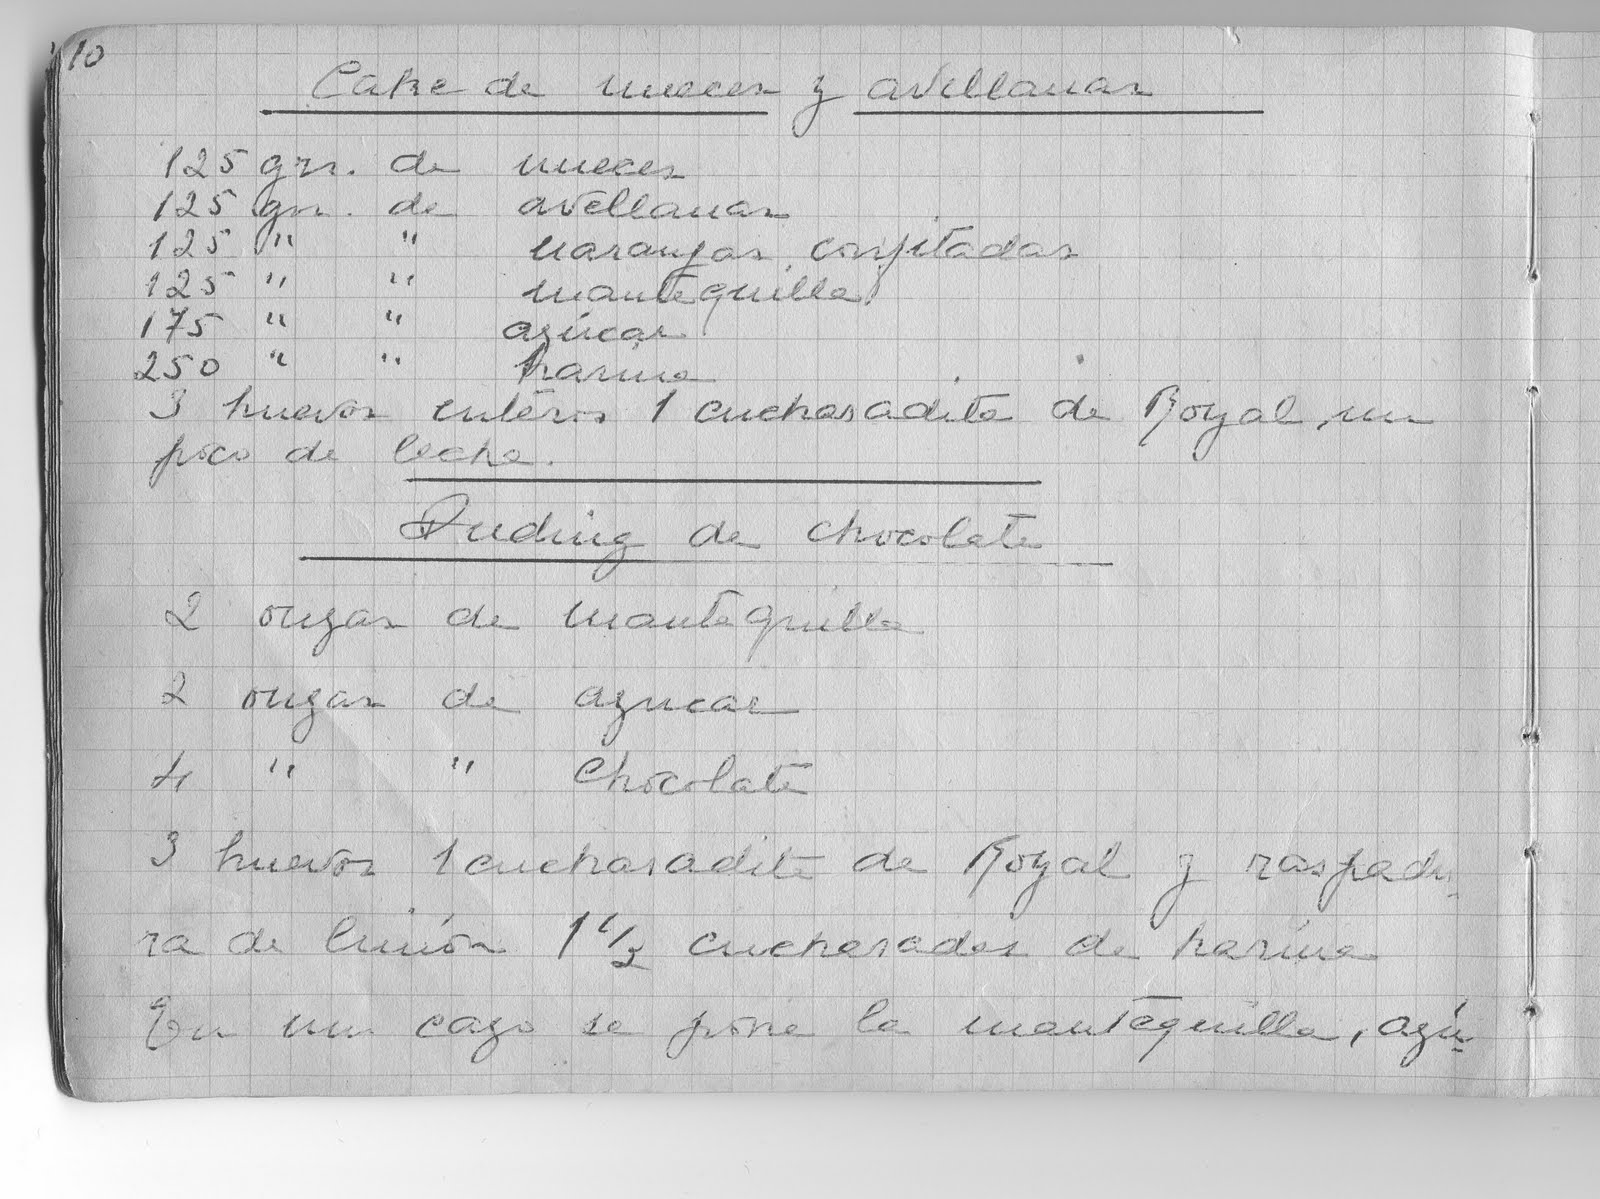 10
Cake de nueces y avellanas
125 grs. de nueces
125 grs. de avellanas
125 " " naranjas confitadas
125 " " mantequilla
175 " " azúcar
250 " " harina
3 huevos enteros 1 cucharadita de Royal, un
poco de leche.
Puding de chocolate
2 onzas de mantequilla
2 onzas de azucar
4 " " Chocolate
3 huevos 1 cucharadita de Royal y raspadu-
ra de limón 1 1/2 cucharadas de harina
En un cazo se pone la mantequilla, azú-